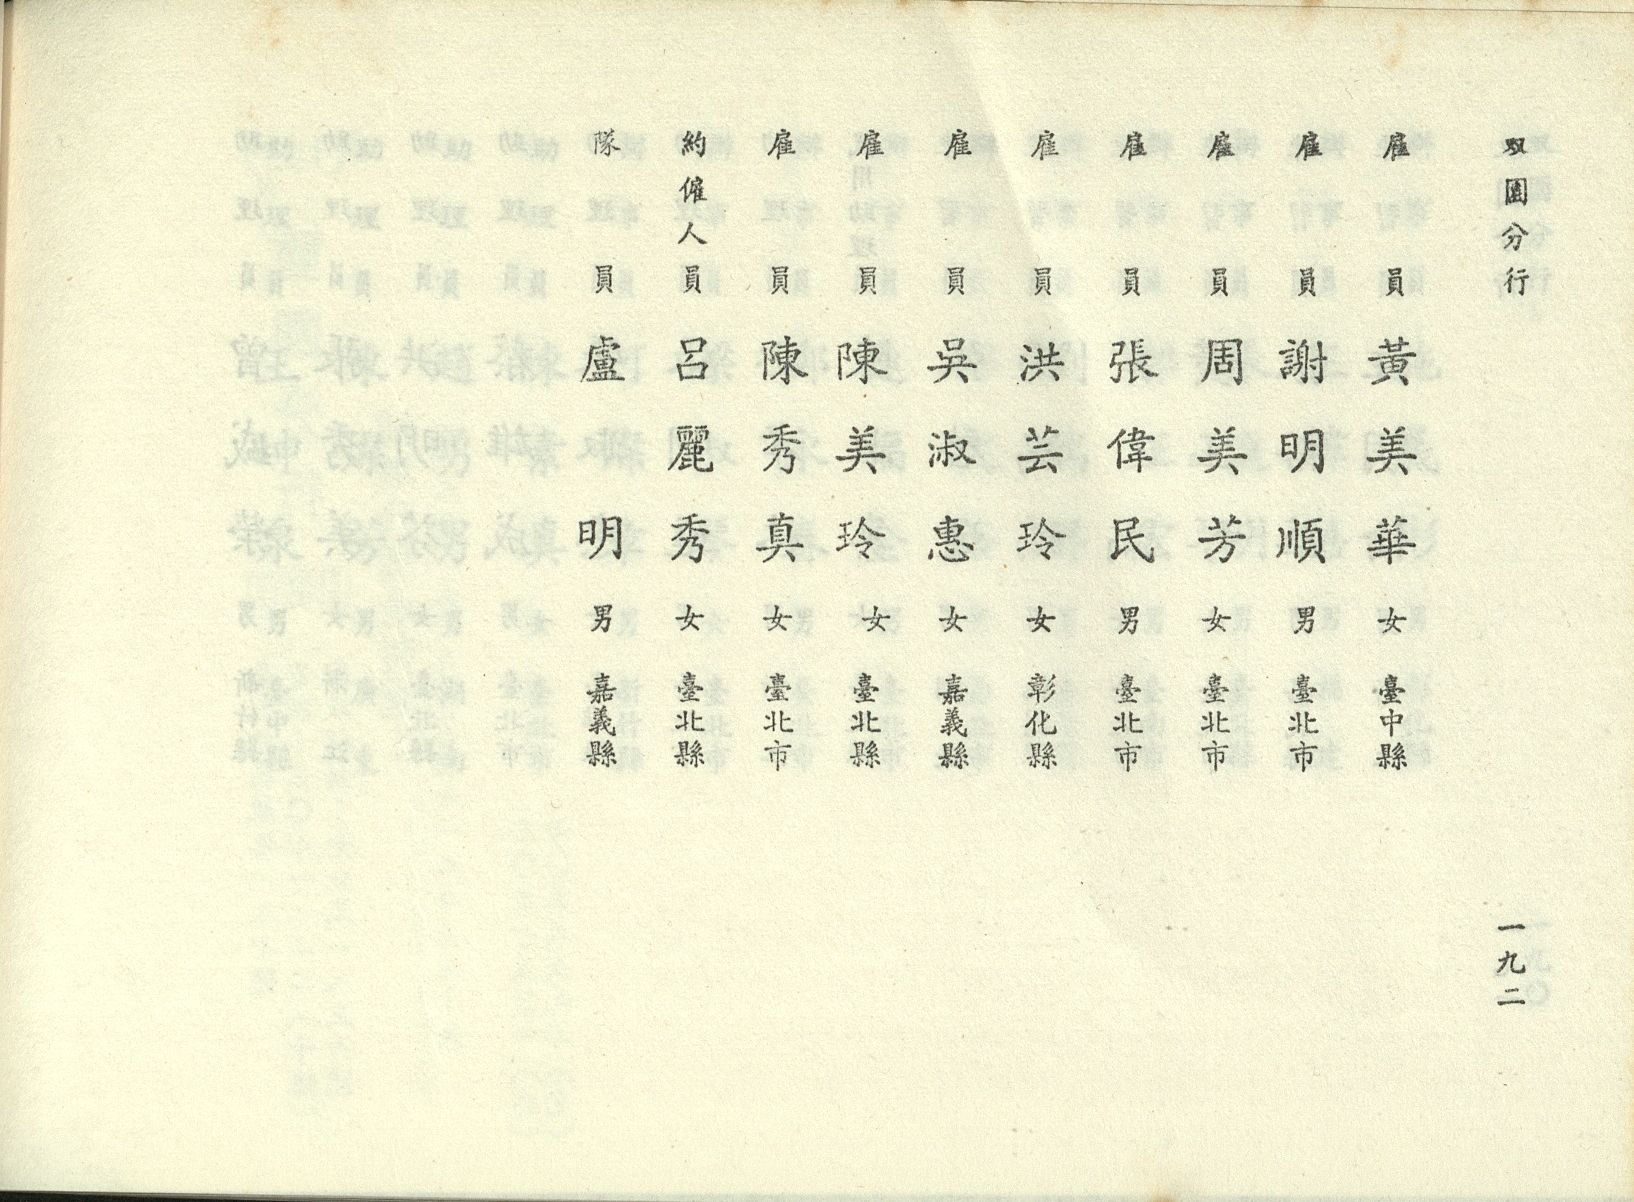 双園分行
一九二
雇員 黃美華 女 臺中縣
雇員 謝明順 男 臺北市
雇員 周美芳 女 臺北市
雇員 張偉民 男 臺北市
雇員 洪芸玲 女 彰化縣
雇員 吳淑惠 女 嘉義縣
雇員 陳美玲 女 臺北縣
雇員 陳秀真 女 臺北市
約僱人員 呂麗秀 女 臺北縣
隊員 盧明 男 嘉義縣